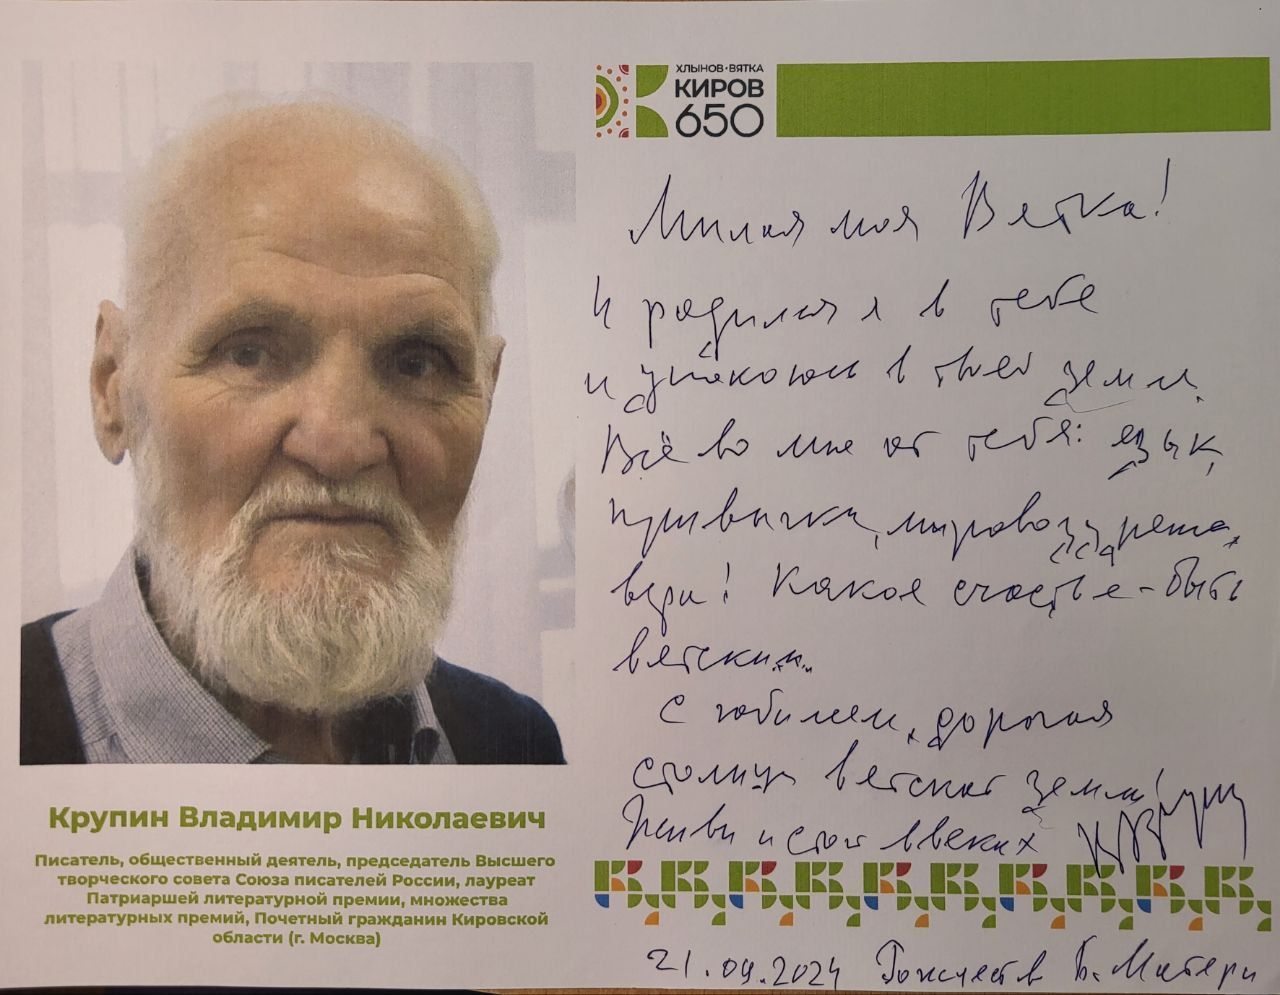 ХЛЫНОВ·ВЯТКА
КИРОВ
650
Милая моя Вятка!
И родился я в тебе
и упокоюсь в твоей земле.
Всё во мне от тебя: язык,
привычки, мировоззрение,
вера! Какое счастье - быть
вятским.
С юбилеем, дорогая
столица вятской земли!
Живи и стой в веках
Крупин Владимир Николаевич
Писатель, общественный деятель, председатель Высшего
творческого совета Союза писателей России, лауреат
Патриаршей литературной премии, множества
литературных премий, Почетный гражданин Кировской
области (г. Москва)
21.09.2024 Рождество Б. Матери